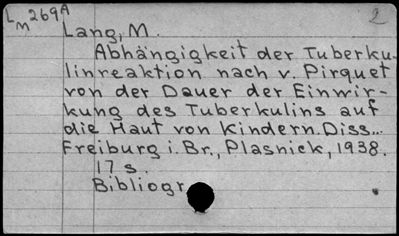 Lm 269A
2
Lang, M.
Abhängigkeit der Tuberku-
linreaktion nach v. Pirquet
von der Dauer der Einwir-
kung des Tuberkulins auf
die Haut von Kindern. Diss...
Freiburg i. Br., Plasnick, 1938.
17 s.
Bibliogr